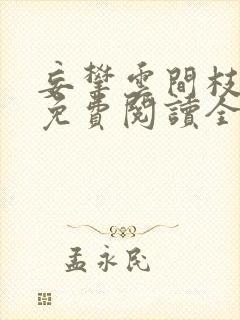 妄攀雲間枝
免費閱讀全
孟永民